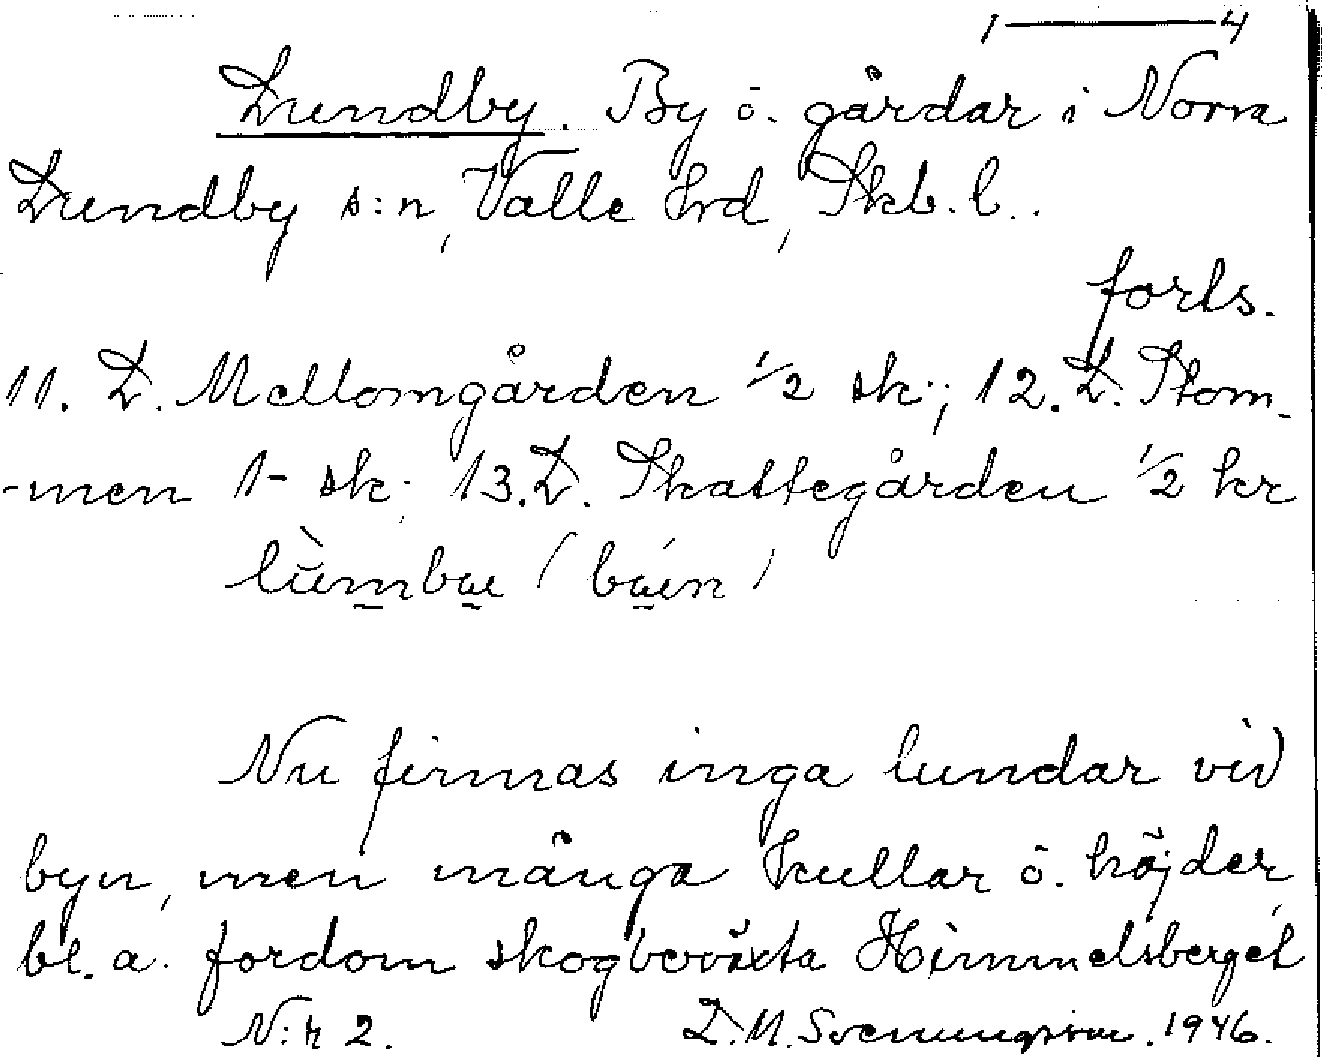 1 — 4
Lundby. By ö. gårdar i Norra
Lundby s:n, Valle hrd, Skb. l..
forts.
11. L. Mellomgården 1/2 sk.; 12. L. Stom-
-men 1- sk. 13. L. Skattegården 1/2 kr
(
Nu finnas inga lundar vid
byn, men många kullar ö. höjder,
bl. a. fordom skogbeväxta Himmelsberget
N:r 2. D. M. Svenungsson. 1946.